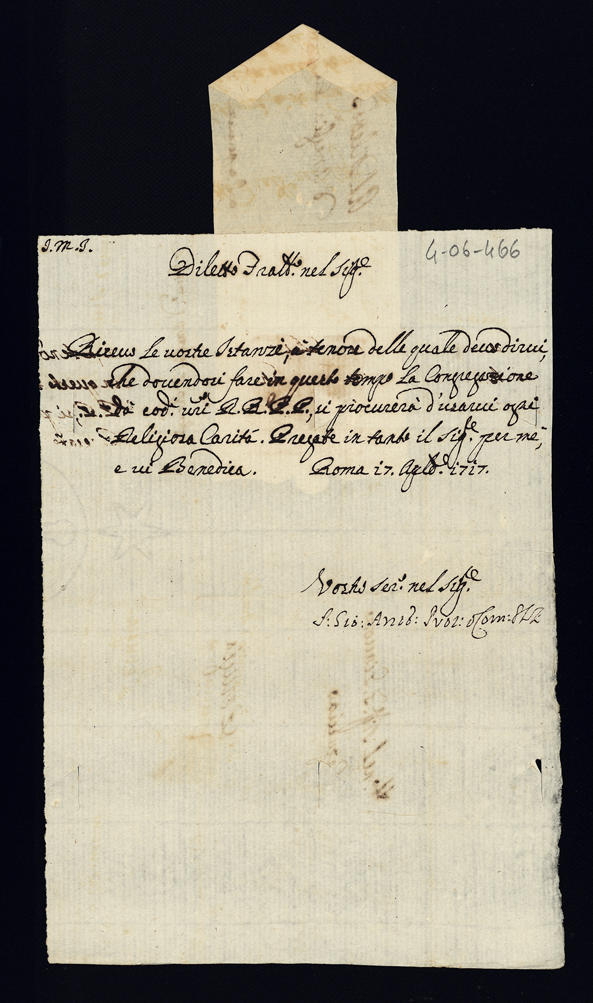 J. M. J.
4-06-466
Diletto Fratt.º nel Sig.e
Ricevo le vostre Istanze, a tenore delle quale devo dirvi,
che dovendosi fare in questo tempo la Congregazione
da cod.i vri R.R. P.P., si procurerà d'usarvi ogni
Religiosa Carità. Pregate in tanto il Sig.e per me,
e vi Benedica. Roma 17. Agto. 1717.
Vostro ser.e nel Sig.e
F. Gio: Anto: